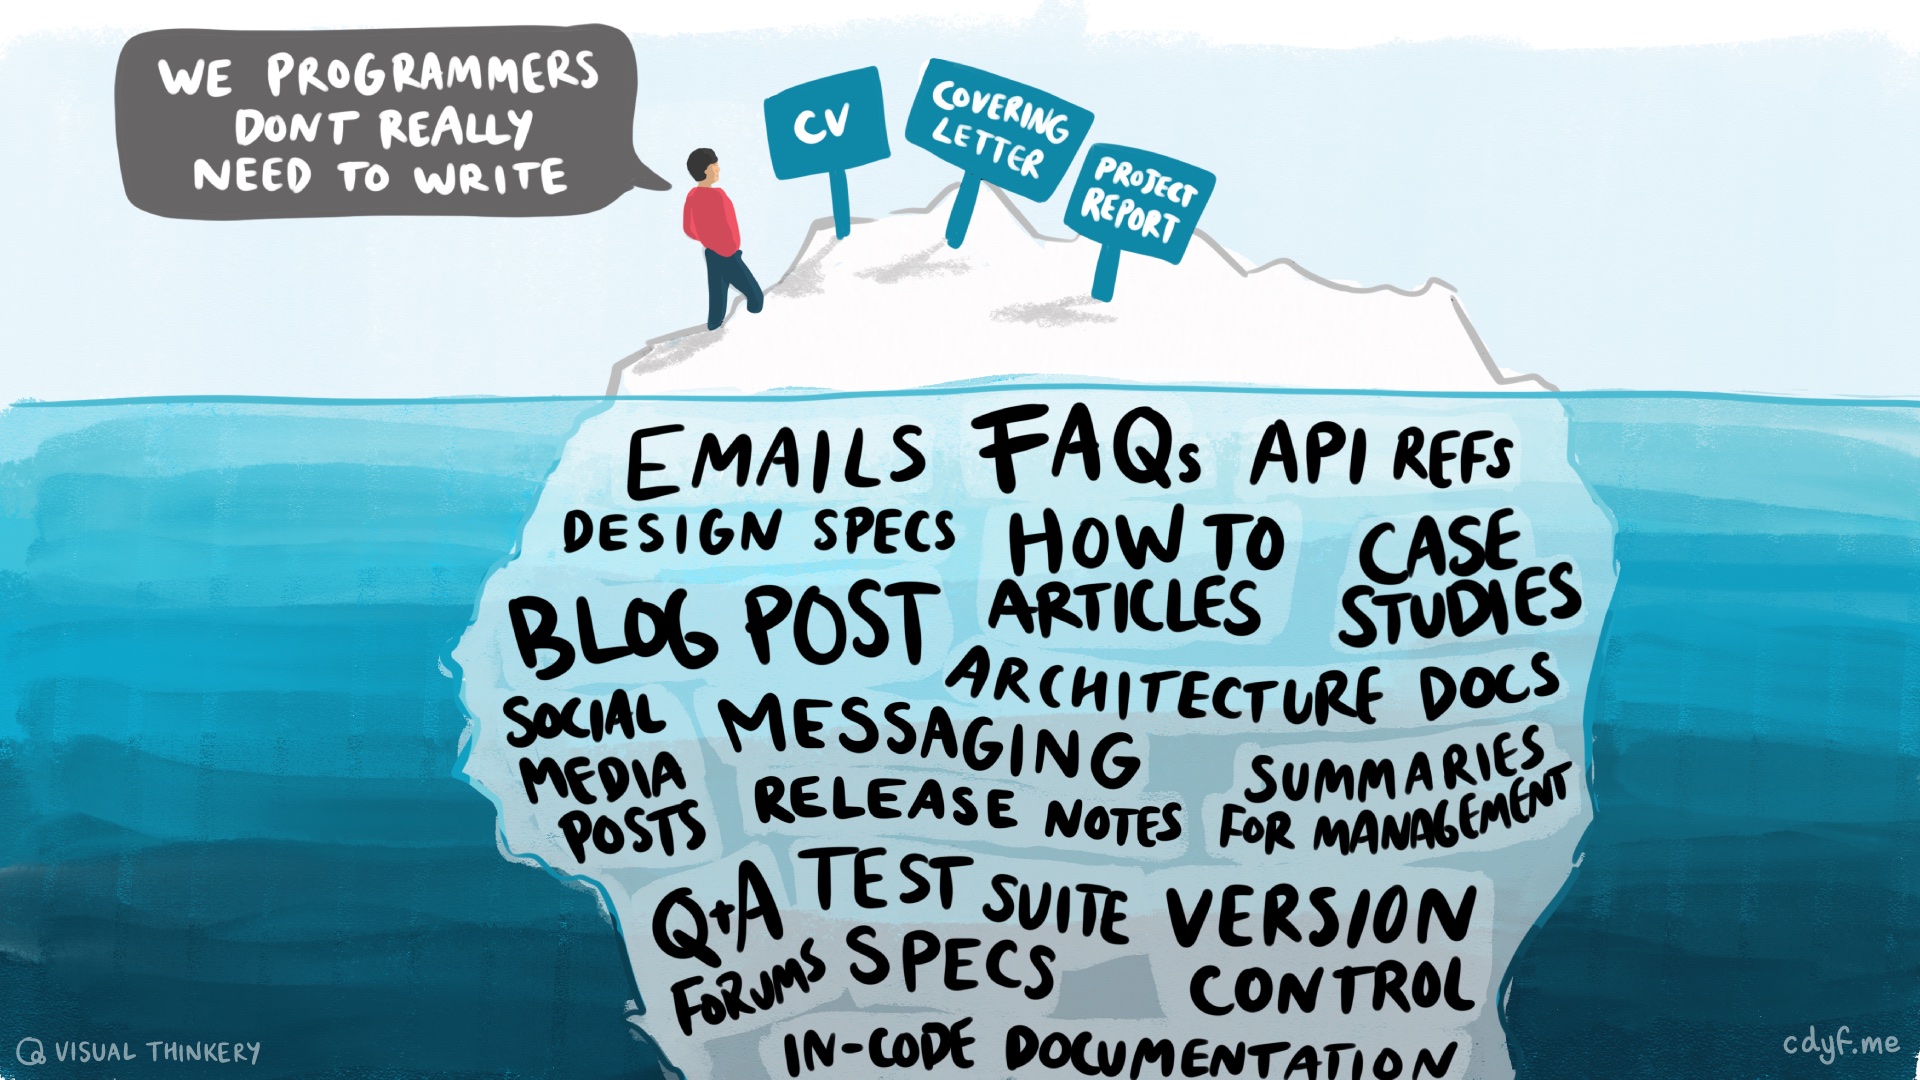 WE PROGRAMMERS
DONT REALLY
NEED TO WRITE
CV
COVERING
LETTER
PROJECT
REPORT
EMAILS
FAQs
API REFS
DESIGN SPECS
HOW TO
ARTICLES
CASE
STUDIES
BLOG POST
ARCHITECTURE DOCS
SOCIAL
MEDIA
POSTS
MESSAGING
RELEASE NOTES
SUMMARIES
FOR MANAGEMENT
Q+A
FORUMS
TEST SUITE
SPECS
VERSION
CONTROL
IN-CODE DOCUMENTATION
VISUAL THINKERY
cdyf.me